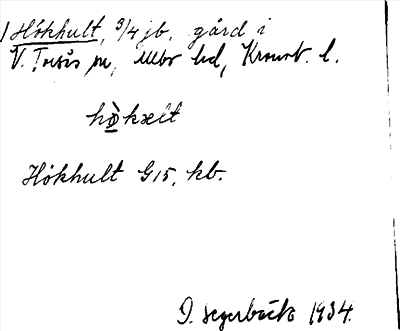 Hökhult, 3/4 jb, gård i
V. Torsås sn, Allbo hd, Kronob. l.
hökælt
Hökhult G 15, kb.
D. Segerbäck 1934.